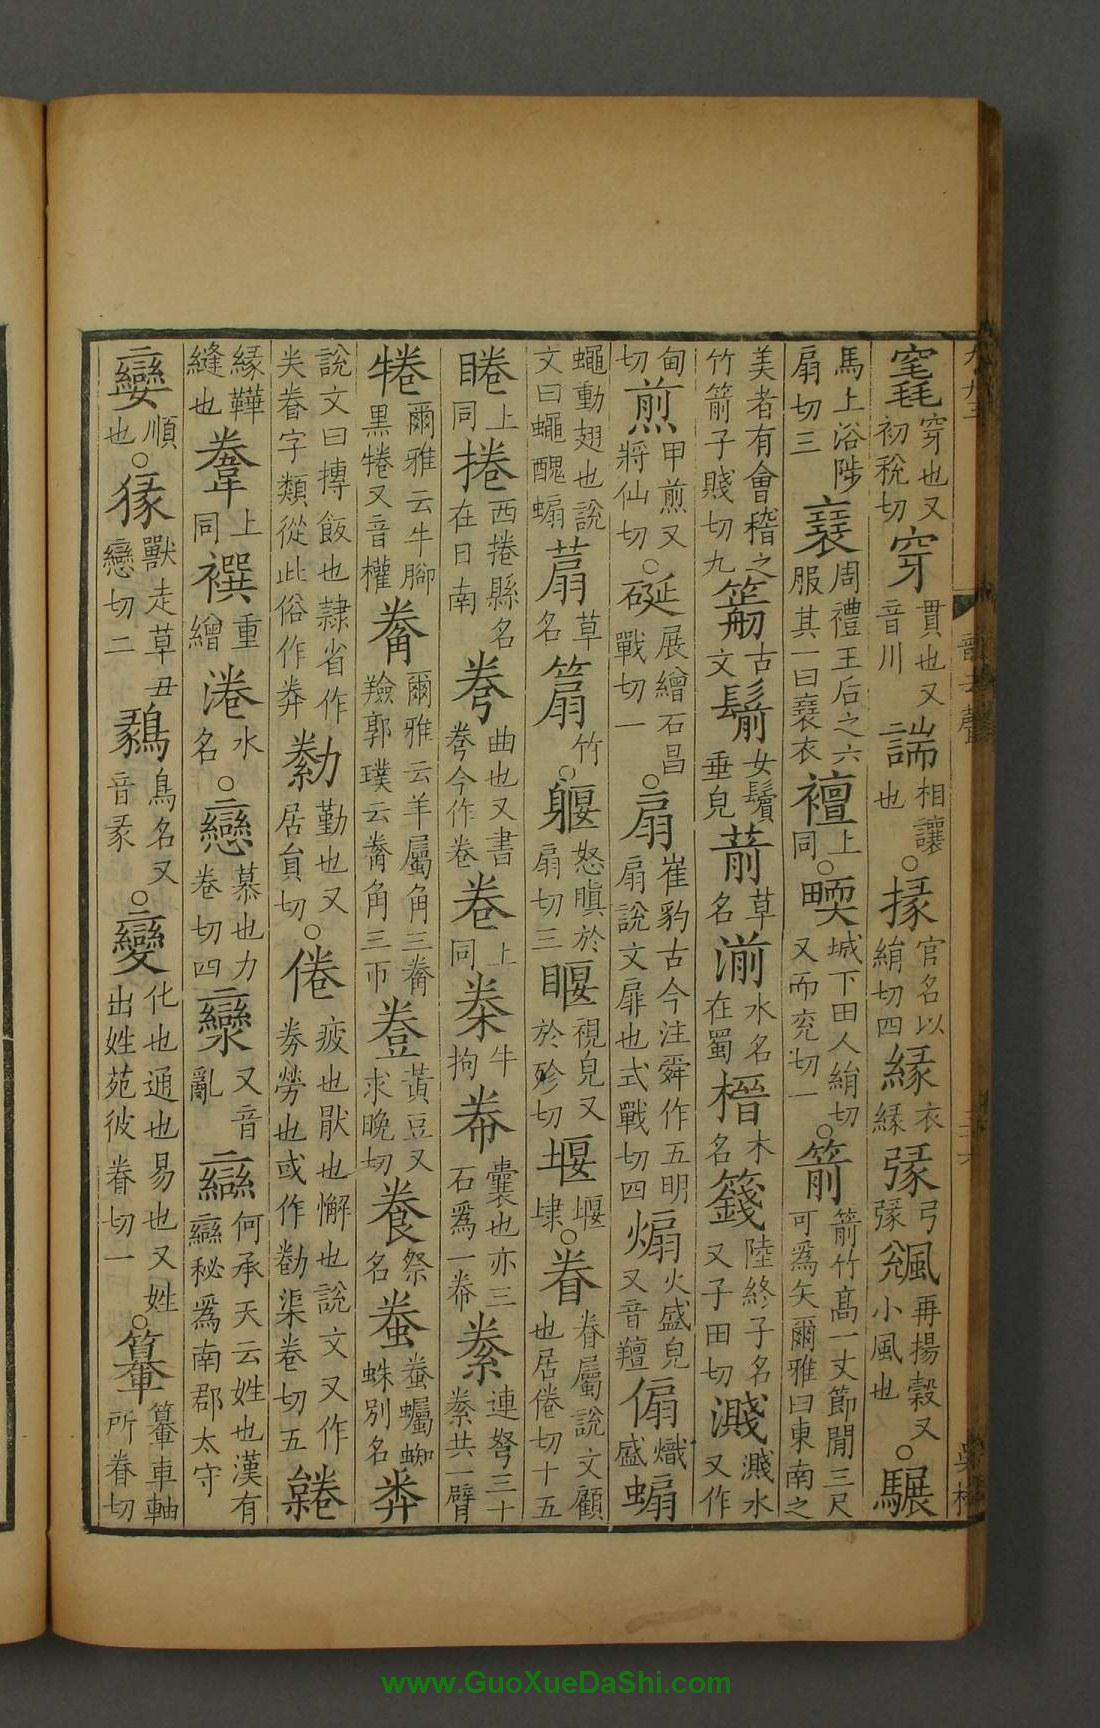 竁穿也又初稅切穿貫也又音川諯相讓也○掾官名以絹切四緣衣緣㣃弓㣃䬅再揚穀又小風也○驏
馬上浴陟扇切三襢周禮王后之六服其一曰襢衣襢上同○㬉城下田人絹切又而兖切一○箭箭竹高一丈節閒三尺可爲矢爾雅曰東南之
美者有會稽之竹箭子賤切九古文鬋女鬢垂皃葥草名湔水名在蜀榗木名籛陸終子名又子田切濺濺水又作
甸切煎甲煎又將仙切○硟展繒石昌戰切一○扇崔豹古今注舜作五明扇說文扉也式戰切四煽火盛皃又音羶傓熾盛蝙
蠅動翅也說文曰蠅醜蝙草名竹○躽怒瞋於扇切三䁙視皃又於殄切堰堰埭○眷眷屬說文顧也居倦切十五
睠上同捲西捲縣名在日南弮曲也又書弮今作卷卷上同桊牛拘帣囊也亦三石爲一帣絭連弩三十絭共一臂
犈爾雅云牛腳黑犈又音權觠爾雅云羊屬角三觠羷郭璞云觠角三帀登黃豆又求晚切餋祭名蛬蛬蠾蜘蛛別名𢍏
說文曰摶飯也隷省作𢍏眷字類從此俗作𢍏勌勤也又居負切○倦疲也猒也懈也說文又作劵勞也或作勌渠卷切五
緣鞾縫也韏上同襈重繒港水名○戀慕也力卷切四又音亂何承天云姓也漢有秘爲南郡太守
孌順也○獸走草丑戀切二鳥名又音彖○變化也通也易也又姓出姓苑彼眷切一○䉋䉋車軸所眷切
www.GuoXueDaShi.com